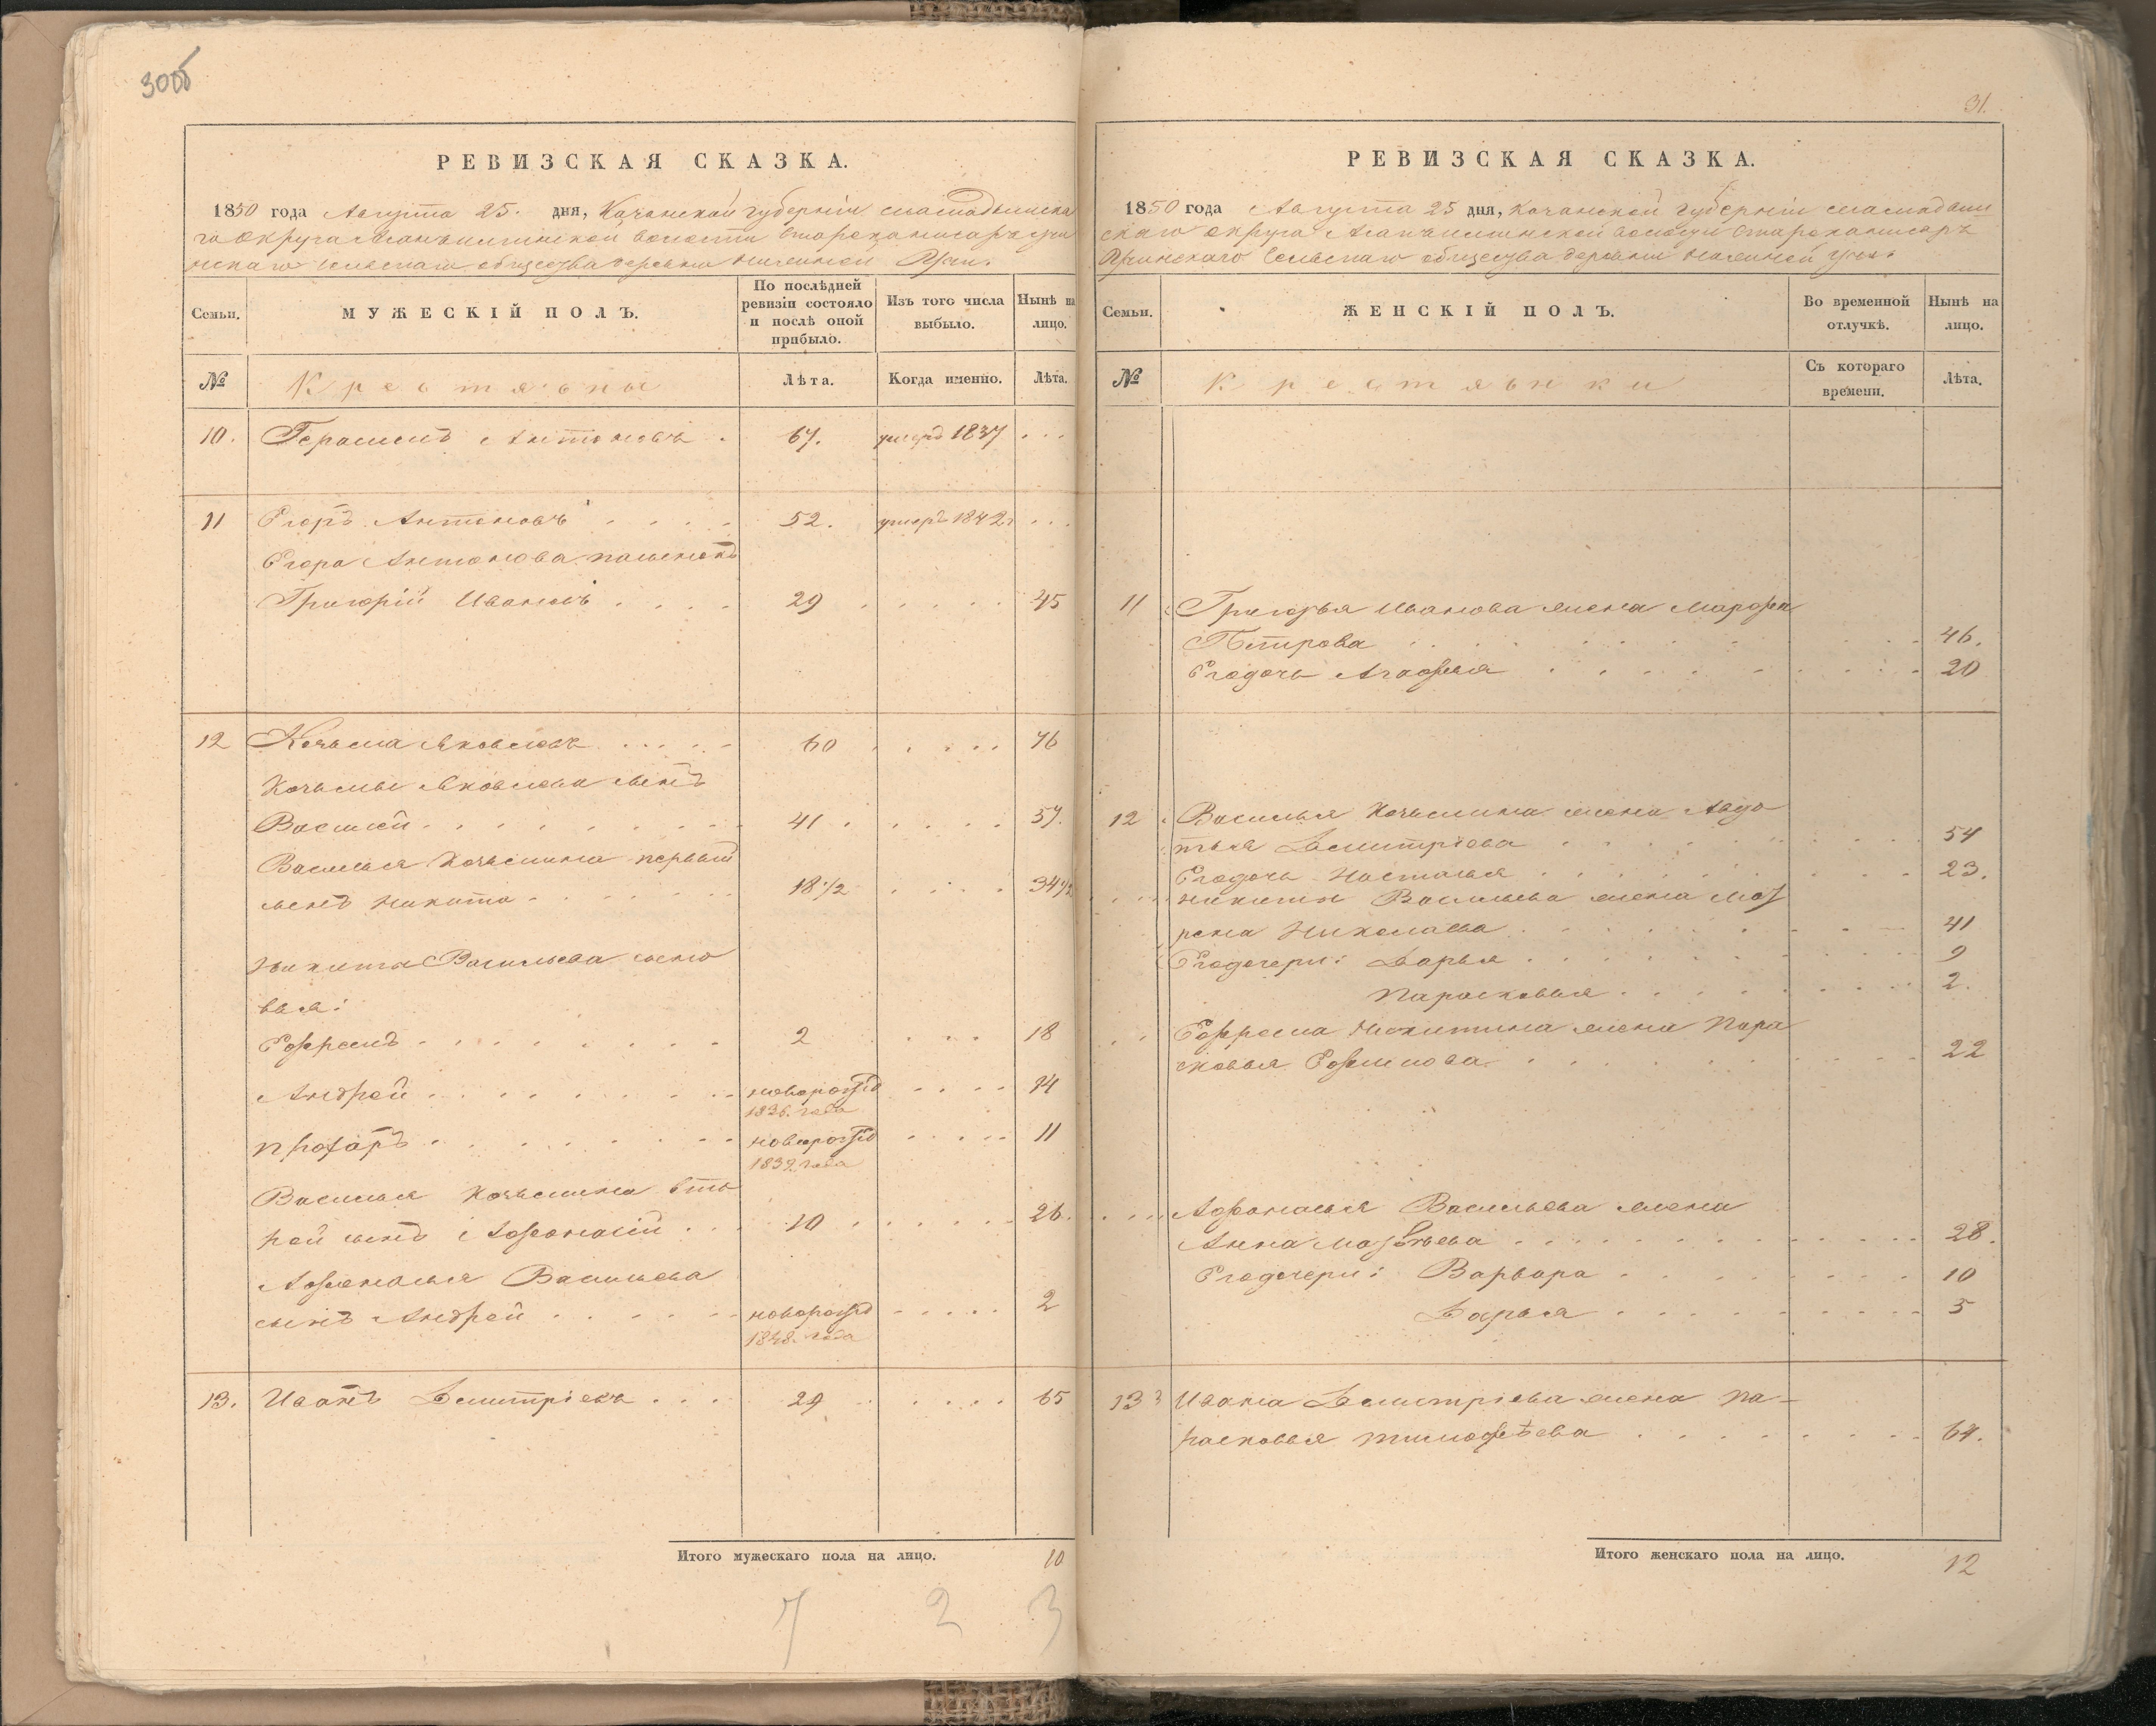 30об
РЕВИЗСКАЯ СКАЗКА.
1850 года Августа 25. дня, Казанской губерніи мамадышска
го округа волости
сельскаго общества деревни нижней Учи.
Семьи.
МУЖЕСКІЙ ПОЛЪ.
По послѣдней ревизіи состояло и послѣ оной прибыло.
Изъ того числа выбыло.
Нынѣ на лицо.
№
Крестьяны
Лѣта.
Когда именно.
Лѣта.
10. Герасимъ Антоновъ . 67. умеръ 1837 . . .
11 Егоръ Антоновъ . . . . 52. умеръ 1842 . . .
Егора Антонова пасынокъ
Григорій Ивановъ . . . . 29 . . . . . 45
12 Козьма Яковлевъ . . . . . 60 . . . . . 76
Козьмы Яковлева сынъ
Василей . . . . . . . . 41 . . . . . 57.
Василья Козьмина первый
сынъ Никита . . . . . . 18 1/2 . . . . 34 1/2
Никиты Васильева сыно
вья:
Ефремъ . . . . . . . . 2 . . . 18
Андрей . . . . . . . . новорожд . . . . 14
1836. года
новорожд . . . . . 11
1839. года
Василья Козьмина вто
рой сынъ Афонасій . . . 10 . . . . . . 26.
Афонасья Васильева
сынъ Андрей . . . . . . новорожд . . . . . 2
1848. года
13. Иванъ Дмитріевъ . . . 29 . . . . . 65
Итого мужескаго пола на лицо. 10
7 2 3
31.
РЕВИЗСКАЯ СКАЗКА.
1850 года Августа 25 дня, Казанской губерніи мамадыш
скаго округа волости
Учинскаго сельскаго общества деревни нижней Учи.
Семьи.
ЖЕНСКІЙ ПОЛЪ.
Во временной отлучкѣ.
Нынѣ на лицо.
№
Крестьянки
Съ котораго времени.
Лѣта.
11 Григорья Иванова жена Марфа
Петрова . . . . . . . . 46.
Егодочь Агафья . . . . . . . . 20
12 Василья Козьмина жена Авдо
тья Дмитріева . . . . . . . . 54
Егодочь Настасья . . . . . . . 23.
Никиты Васильева жена Мат
рена Николаева . . . . . . . 41
Егодочери: Дарья . . . . . . . . 9
Парасковья . . . . . . . 2.
Ефрема Никитина жена Пара
сковья Ефимова . . . . . . . . 22
Афонасья Васильева жена
Анна Матвѣева . . . . . . . . 28.
Егодочери: Варвара . . . . . . . 10
Дарья . . . . . . . . 5
13 Ивана Дмитріева жена Па-
расковья Тимофѣева . . . . . . . 64.
Итого женскаго пола на лицо. 12